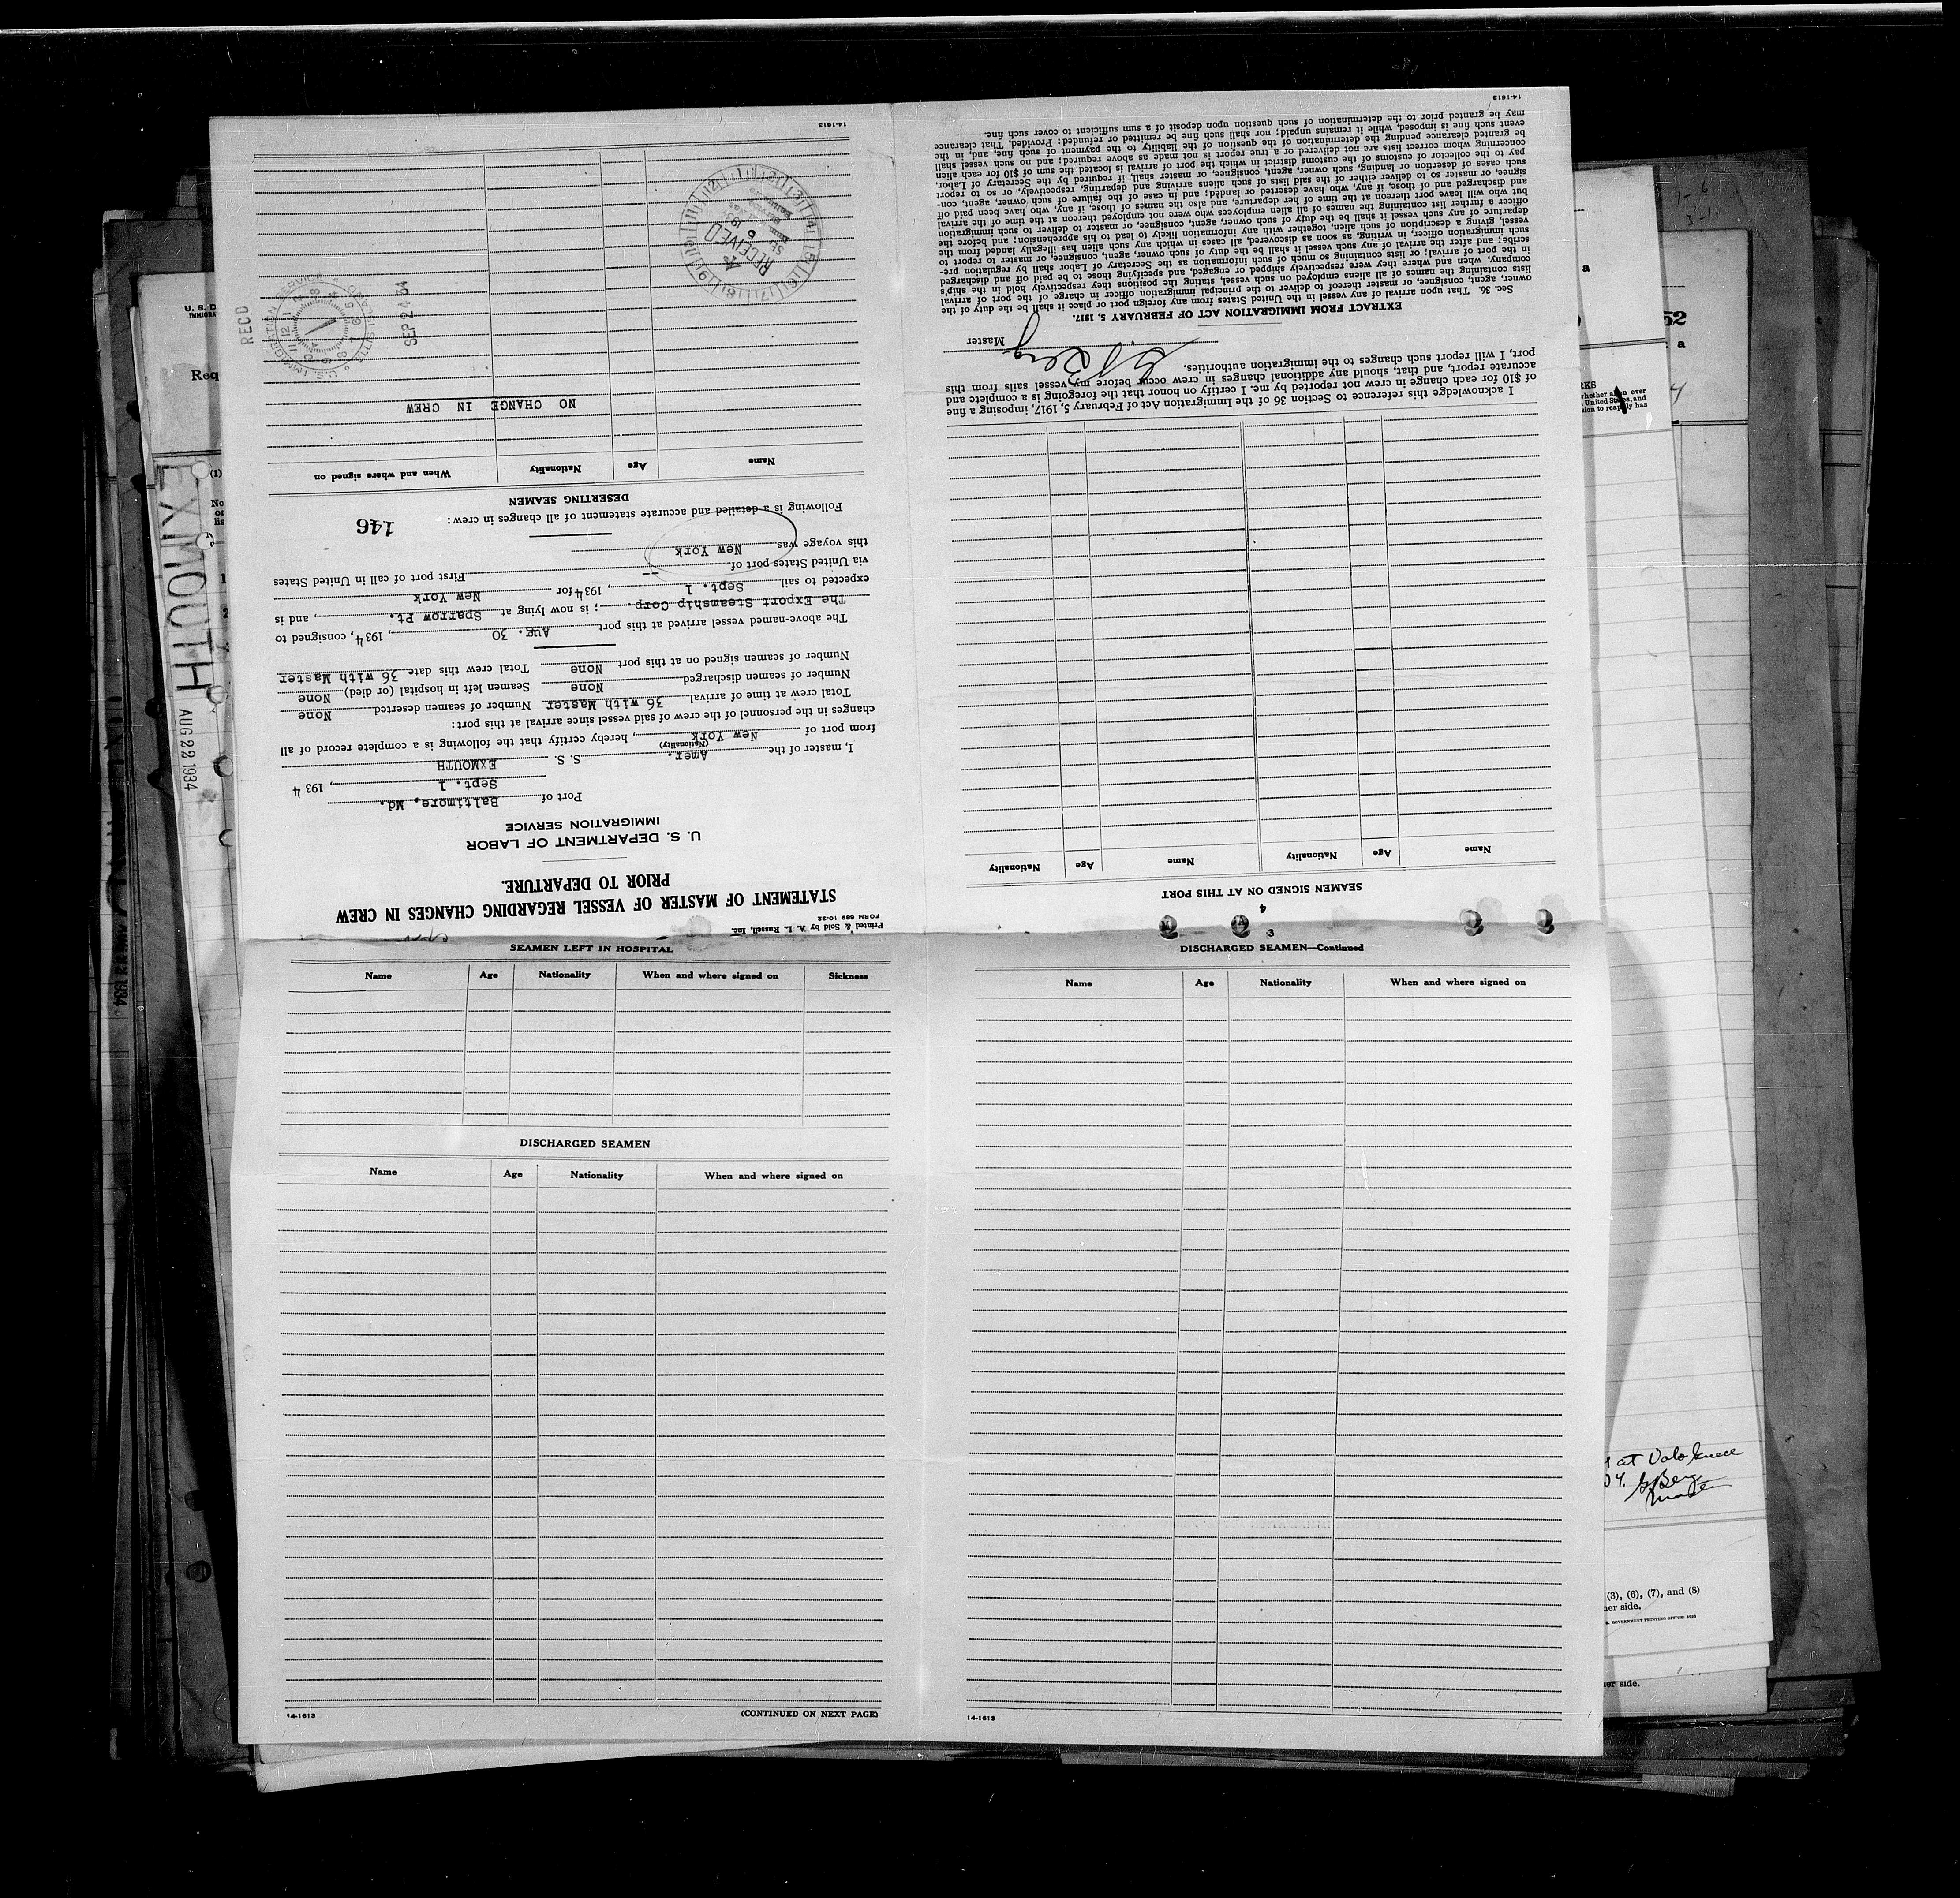 Printed & Sold by A. L. Russell, Inc.
FORM 689 10-32
STATEMENT OF MASTER OF VESSEL REGARDING CHANGES IN CREW
PRIOR TO DEPARTURE.
U. S. DEPARTMENT OF LABOR
IMMIGRATION SERVICE
Port of Baltimore, Md.
Sept. 1, 1934
I, master of the Amer. S. S. EXMOUTH
(Nationality)
from port of New York, hereby certify that the following is a complete record of all
changes in the personnel of the crew of said vessel since arrival at this port:
Total crew at time of arrival 36 with Master Number of seamen deserted None
Number of seamen discharged None Seamen left in hospital (or died) None
Number of seamen signed on at this port None Total crew this date 36 with Master
The above-named vessel arrived at this port Aug. 30, 1934, consigned to
The Export Steamship Corp.; is now lying at Sparrow Pt., and is
expected to sail Sept. 1, 1934 for New York
via United States port of -- First port of call in United States
this voyage was New York
Following is a detailed and accurate statement of all changes in crew:
146
DESERTING SEAMEN
Name Age Nationality When and where signed on
NO CHANGE IN CREW
RECEIVED
RECD
U.S. IMMIGRATION SERVICE
ELLIS ISLAND
SEP 24 04
14-1613
SEAMEN LEFT IN HOSPITAL
Name Age Nationality When and where signed on Sickness
DISCHARGED SEAMEN
Name Age Nationality When and where signed on
14-1613
(CONTINUED ON NEXT PAGE)
3
DISCHARGED SEAMEN—Continued
Name Age Nationality When and where signed on
14-1613
4
SEAMEN SIGNED ON AT THIS PORT
Name Age Nationality Name Age Nationality
I acknowledge this reference to Section 36 of the Immigration Act of February 5, 1917, imposing a fine
of $10 for each change in crew not reported by me. I certify on honor that the foregoing is a complete and
accurate report, and that, should any additional changes in crew occur before my vessel sails from this
port, I will report such changes to the immigration authorities.
Berg
Master
EXTRACT FROM IMMIGRATION ACT OF FEBRUARY 5, 1917.
Sec. 36. That upon arrival of any vessel in the United States from any foreign port or place it shall be the duty of the
owner, agent, consignee, or master thereof to deliver to the principal immigration officer in charge of the port of arrival
lists containing the names of all aliens employed on such vessel, stating the positions they respectively hold in the ship's
company, when and where they were respectively shipped or engaged, and specifying those to be paid off and discharged
in the port of arrival; or lists containing so much of such information as the Secretary of Labor shall by regulation pre-
scribe; and after the arrival of any such vessel it shall be the duty of such owner, agent, consignee, or master to report to
such immigration officer, in writing, as soon as discovered, all cases in which any such alien has illegally landed from the
vessel, giving a description of such alien, together with any information likely to lead to his apprehension; and before the
departure of any such vessel it shall be the duty of such owner, agent, consignee, or master to deliver to such immigration
officer a further list containing the names of all alien employees who were not employed thereon at the time of the arrival
but who will leave port thereon at the time of her departure, and also the names of those, if any, who have been paid off
and discharged and of those, if any, who have deserted or landed; and in case of the failure of such owner, agent, con-
signee, or master so to deliver either of the said lists of such aliens arriving and departing, respectively, or so to report
such cases of desertion or landing, such owner, agent, consignee, or master, shall, if required by the Secretary of Labor,
pay to the collector of customs of the customs district in which the port of arrival is located the sum of $10 for each alien
concerning whom correct lists are not delivered or a true report is not made as above required; and no such vessel shall
be granted clearance pending the determination of the question of the liability to the payment of such fine, and, in the
event such fine is imposed, while it remains unpaid; nor shall such fine be remitted or refunded: Provided, That clearance
may be granted prior to the determination of such question upon deposit of a sum sufficient to cover such fine.
14-1613
EXMOUTH
AUG 22 1934
Req
(1)
52
a
(3), (6), (7), and (8)
side.
Berg